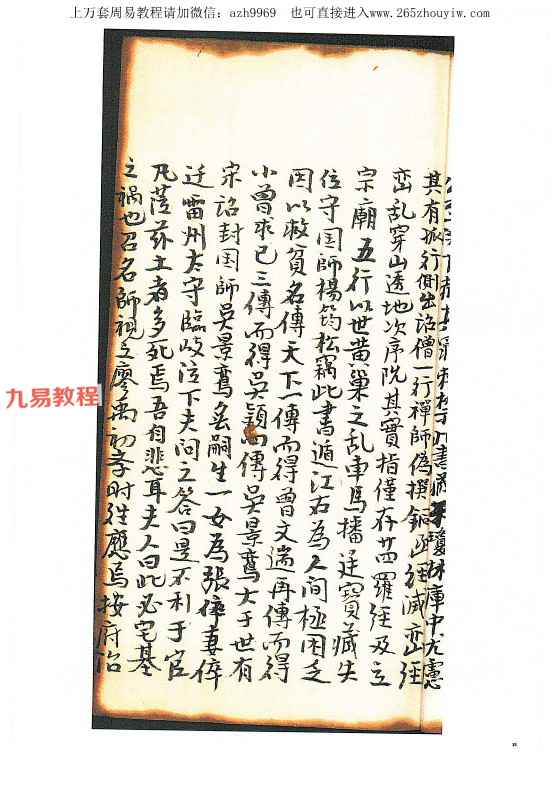 上万套周易教程请加微信：azh9969 也可直接进入www.265zhouyiw.com
書藏 瓊林庫中尤憲
其有狐行側出詔僧一行禪師偽撰銅函經滅蛮經
峦乱穿山透地次序阮其實指僅存廿四羅經及立
宗廟五行以世黄巢之乱車馬播迁寶藏失
位守国師楊筠松竊此書遁江右為人間極困乏
因以救貧名傳天下一傳而得曾文遄再傳而得
小曾求已三傳而得吳穎四傳吳景鸞大于世有
宋詔封国師吴景鸾無嗣生一女為張倅妻倅
迁雷州太守臨岐泣下夫問之答曰是不利于官
凡蒞茲土者多死焉吾自悲耳夫人曰此必宅基
之禍也召名師視之廖禹初孝时往應焉按府治
九易教程